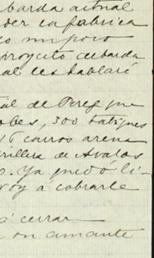 barda actual
der la fabrica
o un poco
proyecto de barda
al les hablaré
tal de Perez que
obes, 300 tabiques
16 carros arena
rillera de Avalos
o. Ya quedó li-
voy a cobrarle
a cerrar
on amante